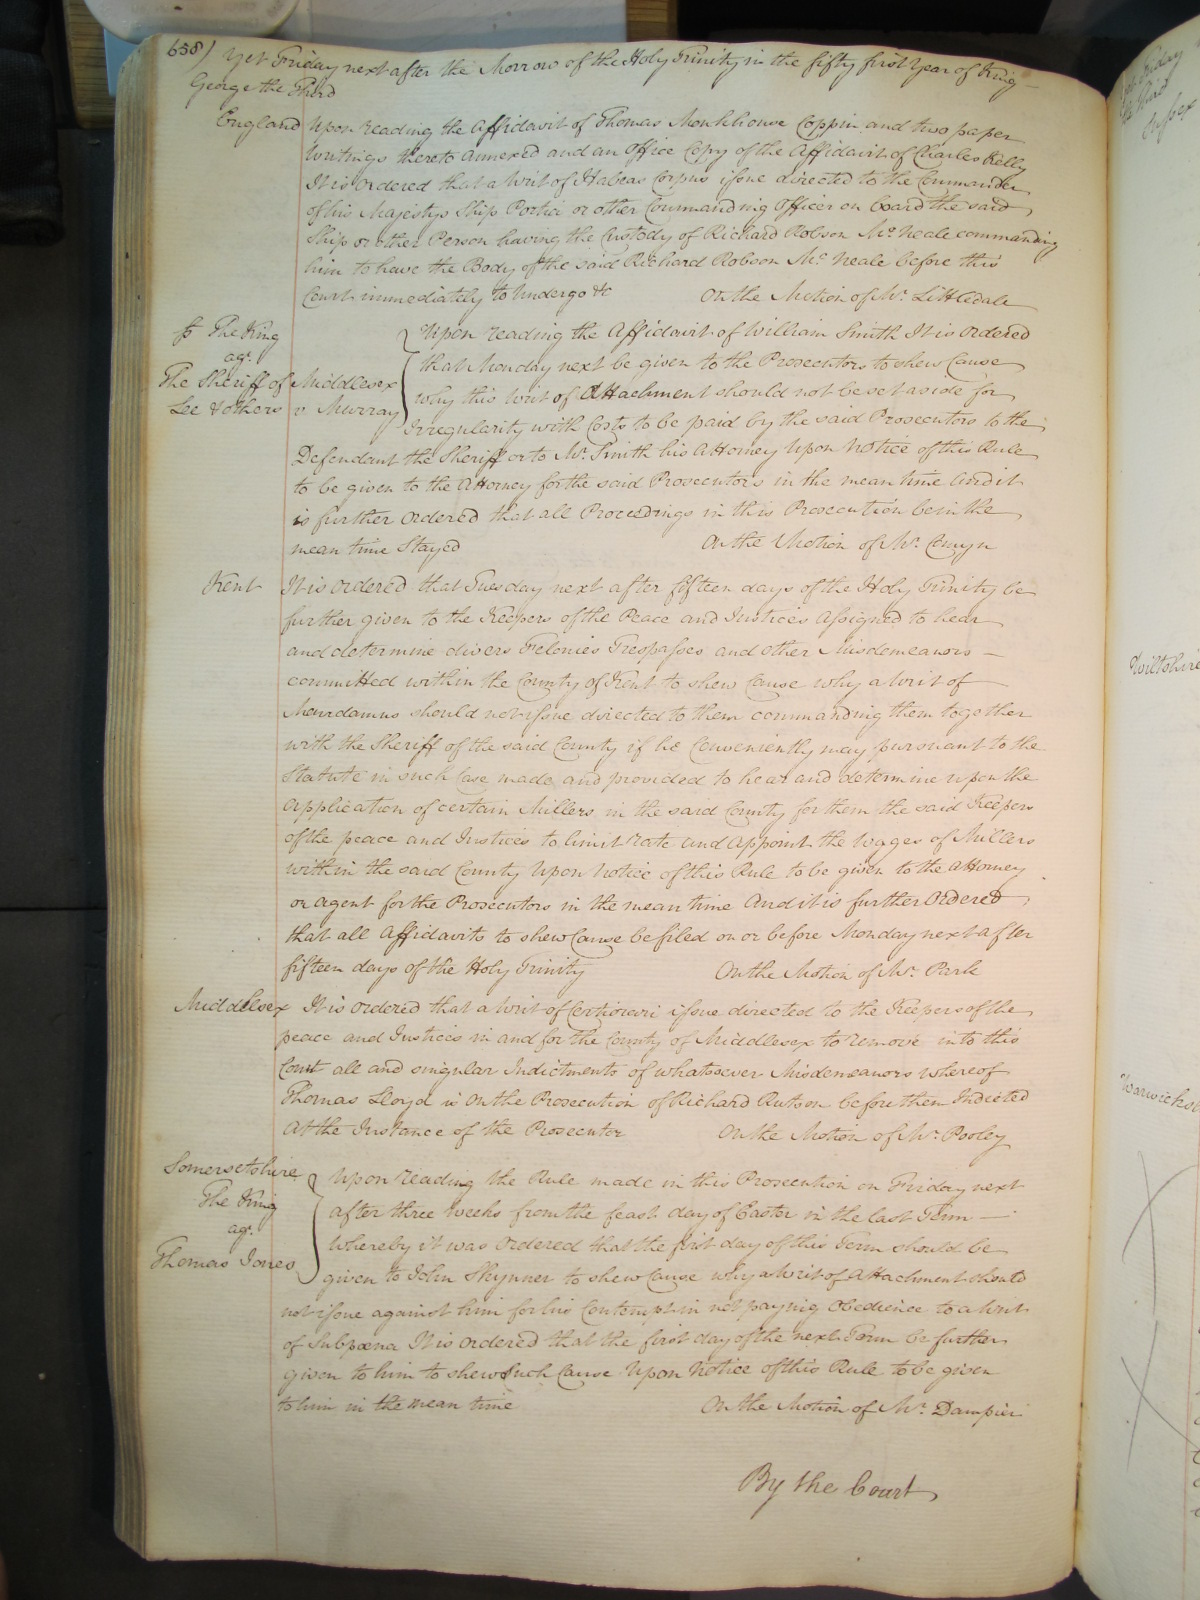 658) Yet Friday next after the Morrow of the Holy Trinity in the fifty first Year of King
George the Third
England Upon reading the Affidavit of Thomas Monkhouse Coppin and two paper
Writings thereto annexed and an Office Copy of the Affidavit of Charles Kelly
It is Ordered that a Writ of Habeas Corpus issue directed to the Commander
of his Majestys Ship Portia or other Commanding Officer on board the said
Ship or other Person having the Custody of Richard Robson Mc. Neale commanding
him to have the Body of the said Richard Robson Mc. Neale before this
Court immediately to undergo &c On the Motion of Mr. Littledale
The King
agt.
The Sheriff of Middlesex
Lee & others v Murray
Upon reading the Affidavit of William Smith It is Ordered
that Monday next be given to the Prosecutors to shew Cause
why this Writ of Attachment should not be set aside for
irregularity with Costs to be paid by the said Prosecutors to the
Defendant the Sheriff or to Mr. Smith his Attorney Upon Notice of this Rule
to be given to the Attorney for the said Prosecutors in the mean time And it
is further Ordered that all Proceedings in this Prosecution be in the
mean time Stayed On the Motion of Mr. Comyn
Kent It is Ordered that Tuesday next after fifteen days of the Holy Trinity be
further given to the Keepers of the Peace and Justices Assigned to hear
and determine divers Felonies Trespasses and other Misdemeanors
committed within the County of Kent to shew Cause why a Writ of
Mandamus should not issue directed to them commanding them together
with the Sheriff of the said County if he Conveniently may pursuant to the
Statute in such Case made and provided to hear and determine upon the
Application of certain Millers in the said County for them the said Keepers
of the peace and Justices to limit rate and appoint the Wages of Millers
within the said County Upon Notice of this Rule to be given to the Attorney
or agent for the Prosecutors in the mean time And it is further Ordered
that all Affidavits to shew Cause be filed on or before Monday next after
fifteen days of the Holy Trinity On the Motion of Mr. Park
Middlesex It is ordered that a Writ of Certiorari issue directed to the Keepers of the
peace and Justices in and for the County of Middlesex to remove into this
Court all and singular Indictments of whatsoever Misdemeanors whereof
Thomas Lloyd is On the Prosecution of Richard Rutson before them Indicted
At the Instance of the Prosecutor On the Motion of Mr. Pooley
Somersetshire
The King
agt.
Thomas Jones
Upon reading the Rule made in this Prosecution on Friday next
after three Weeks from the feast day of Easter in the last Term
Whereby it was Ordered that the first day of this Term should be
given to John Skynner to shew Cause why a Writ of Attachment should
not issue against him for his Contempt in not paying Obedience to a Writ
of Subpœna It is Ordered that the first day of the next Term be further
given to him to shew Such Cause Upon Notice of this Rule to be given
to him in the mean time On the Motion of Mr. Dampier
By the Court
Wiltshire